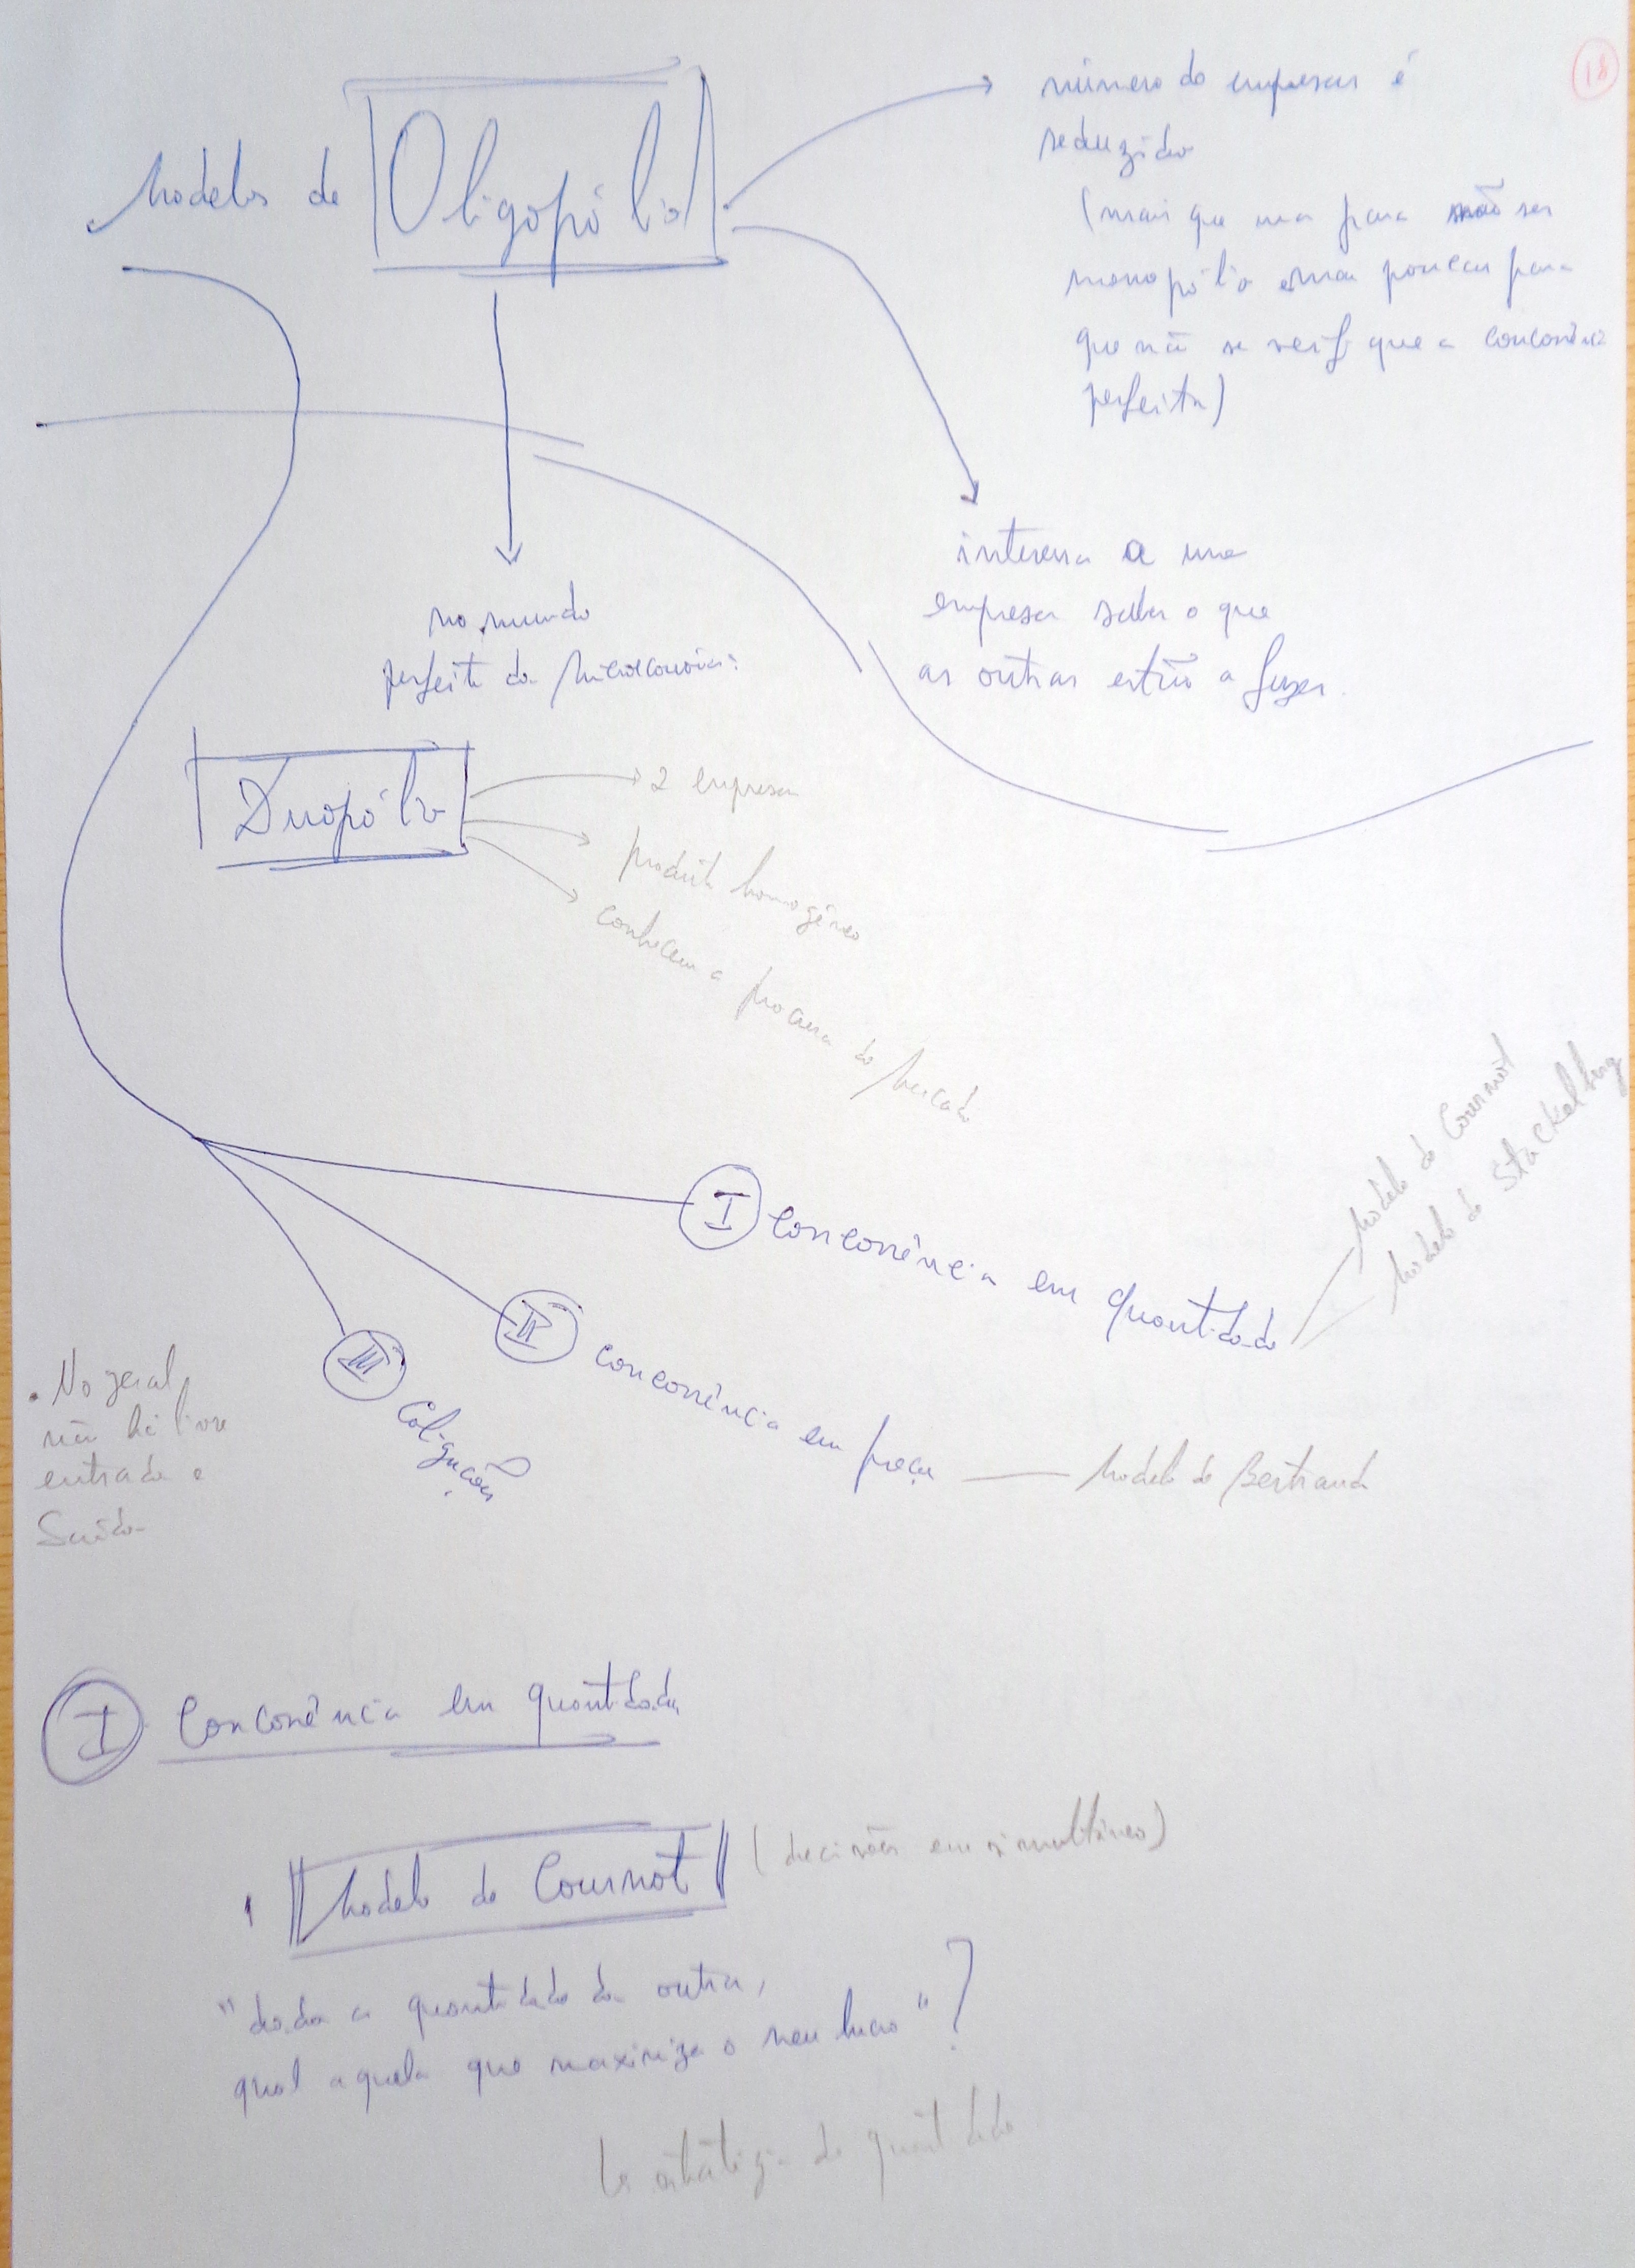 18
Modelos de Oligopólio
número de empresas é
reduzido
(mais que uma para não ser
monopólio e mas poucas para
que não se verifique a concorrência
perfeita)
interessa a uma
empresa saber o que
as outras estão a fazer.
no mundo
perfeito da Microeconomia:
Duopólio
2 empresas
produto homogéneo
conhecem a procura do mercado
I Concorrência em quantidade
Modelo de Cournot
Modelo de Stackelberg
II Concorrência em preço
Modelo de Bertrand
III Coligações
. No geral
não há livre
entrada e
Saída
I Concorrência em quantidade
Modelo de Cournot (decisões em simultâneo)
"dada a quantidade da outra,
qual aquela que maximiza o meu lucro"?
estratégia de quantidade